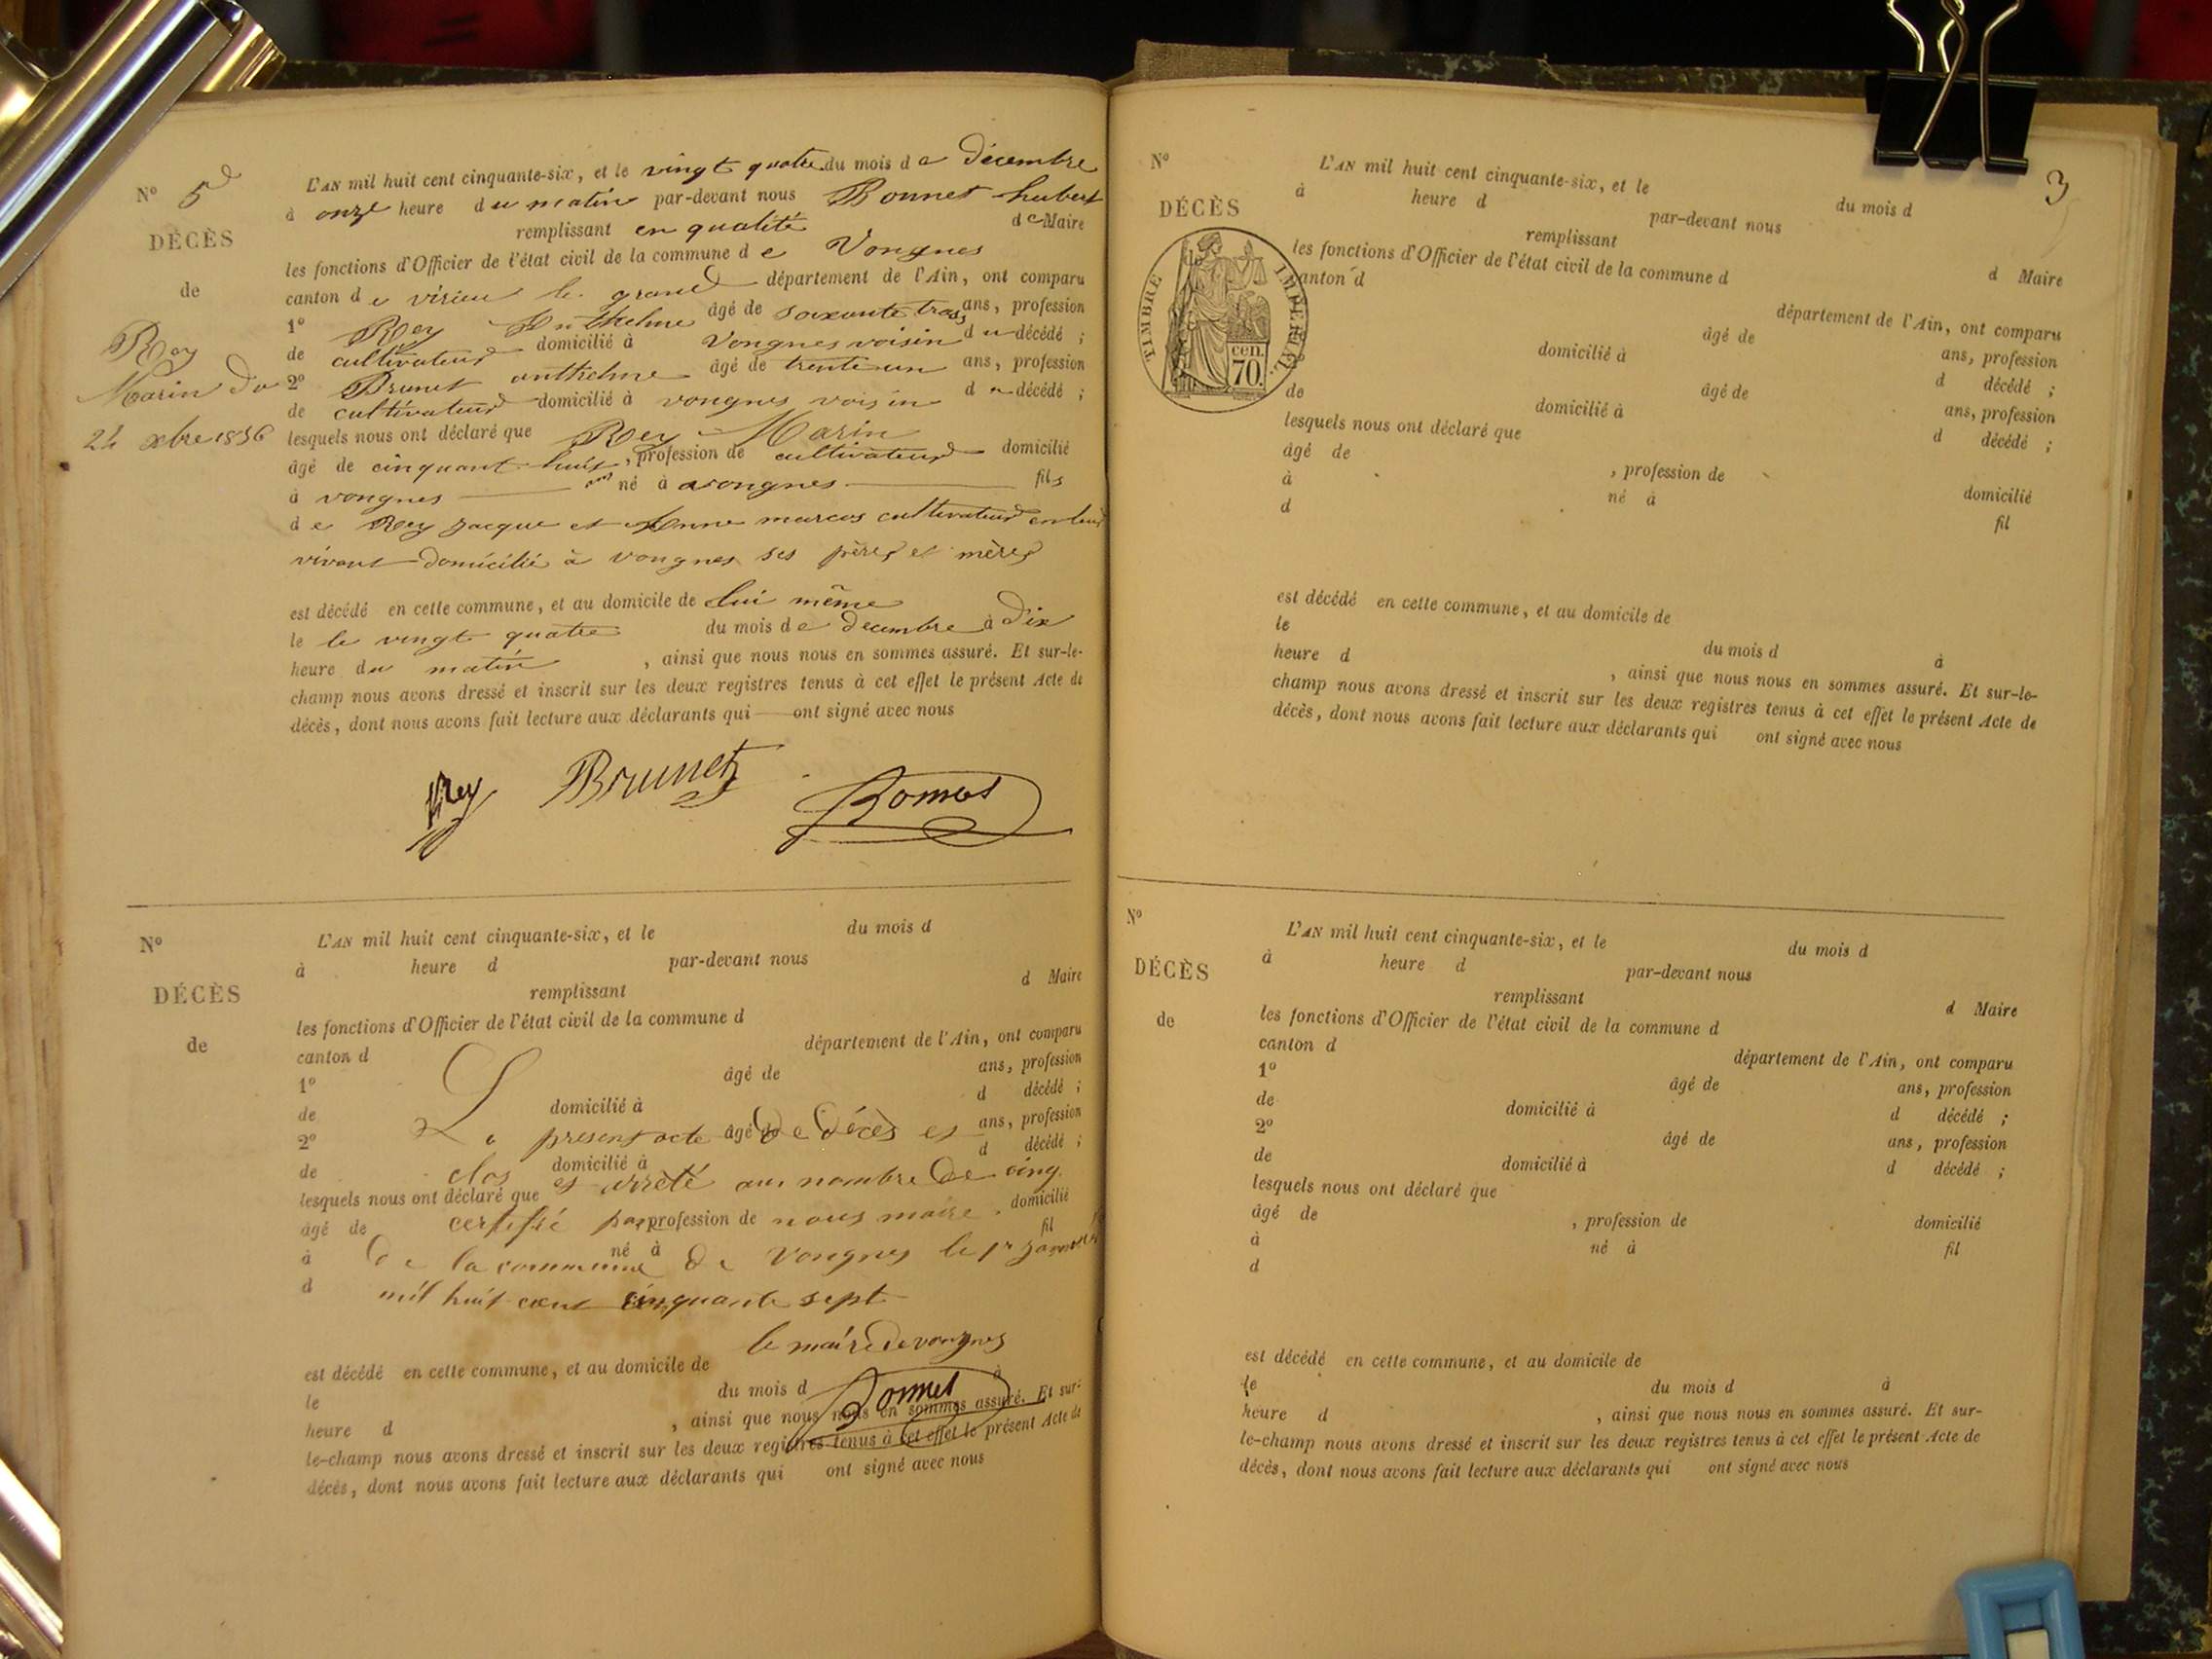 N° 5e
DÉCÈS
de
Rey
Marin du
24 xbre 1856
L'AN mil huit cent cinquante-six, et le vingt quatre du mois de décembre
à onze heure du matin par-devant nous Bonnet hubert
remplissant en qualité de Maire
les fonctions d'Officier de l'état civil de la commune de Vongnes
canton de virieu le grand département de l'Ain, ont comparu
1° Rey Anthelme âgé de soixante trois ans, profession
de cultivateur domicilié à Vongnes voisin du décédé ;
2° Brunet anthelme âgé de trente un ans, profession
de cultivateur domicilié à vongnes voisin du décédé ;
lesquels nous ont déclaré que Rey Marin
âgé de cinquant huit, profession de cultivateur domicilié
à vongnes né à avongnes fils
de Rey Jacque et Anne marcos cultivateur en leur
vivant domicilié à vongnes ses pères et mères
est décédé en cette commune, et au domicile de lui même
le le vingt quatre du mois de decembre à dix
heure du matin , ainsi que nous nous en sommes assuré. Et sur-le-
champ nous avons dressé et inscrit sur les deux registres tenus à cet effet le présent Acte de
décès, dont nous avons fait lecture aux déclarants qui ont signé avec nous
Rey Brunet Bonnet
N°
DÉCÈS
de
L'AN mil huit cent cinquante-six, et le du mois d
à heure d par-devant nous
remplissant d Maire
les fonctions d'Officier de l'état civil de la commune d
canton d département de l'Ain, ont comparu
1° âgé de ans, profession
de domicilié à d décédé ;
2° âgé de ans, profession
de domicilié à d décédé ;
lesquels nous ont déclaré que
âgé de , profession de domicilié
à né à fil
d
Le present acte de décès es
clos et arrêté au nombre de cinq
certifié par nous maire
de la commune de Vongnes le 1er Janvier
mil huit cent cinquante sept
le maire de vongnes
Bonnet
est décédé en cette commune, et au domicile de
le du mois d à
heure d , ainsi que nous nous en sommes assuré. Et sur-
le-champ nous avons dressé et inscrit sur les deux registres tenus à cet effet le présent Acte de
décès, dont nous avons fait lecture aux déclarants qui ont signé avec nous
3
N°
DÉCÈS
TIMBRE IMPÉRIAL
70 cen.
L'AN mil huit cent cinquante-six, et le du mois d
à heure d par-devant nous
remplissant d Maire
les fonctions d'Officier de l'état civil de la commune d
canton d département de l'Ain, ont comparu
âgé de ans, profession
domicilié à d décédé ;
âgé de ans, profession
de domicilié à d décédé ;
lesquels nous ont déclaré que
âgé de , profession de domicilié
à né à fil
d
est décédé en cette commune, et au domicile de
le du mois d à
heure d , ainsi que nous nous en sommes assuré. Et sur-le-
champ nous avons dressé et inscrit sur les deux registres tenus à cet effet le présent Acte de
décès, dont nous avons fait lecture aux déclarants qui ont signé avec nous
N°
DÉCÈS
de
L'AN mil huit cent cinquante-six, et le du mois d
à heure d par-devant nous
remplissant d Maire
les fonctions d'Officier de l'état civil de la commune d
canton d département de l'Ain, ont comparu
1° âgé de ans, profession
de domicilié à d décédé ;
2° âgé de ans, profession
de domicilié à d décédé ;
lesquels nous ont déclaré que
âgé de , profession de domicilié
à né à fil
d
est décédé en cette commune, et au domicile de
le du mois d à
heure d , ainsi que nous nous en sommes assuré. Et sur-
le-champ nous avons dressé et inscrit sur les deux registres tenus à cet effet le présent Acte de
décès, dont nous avons fait lecture aux déclarants qui ont signé avec nous